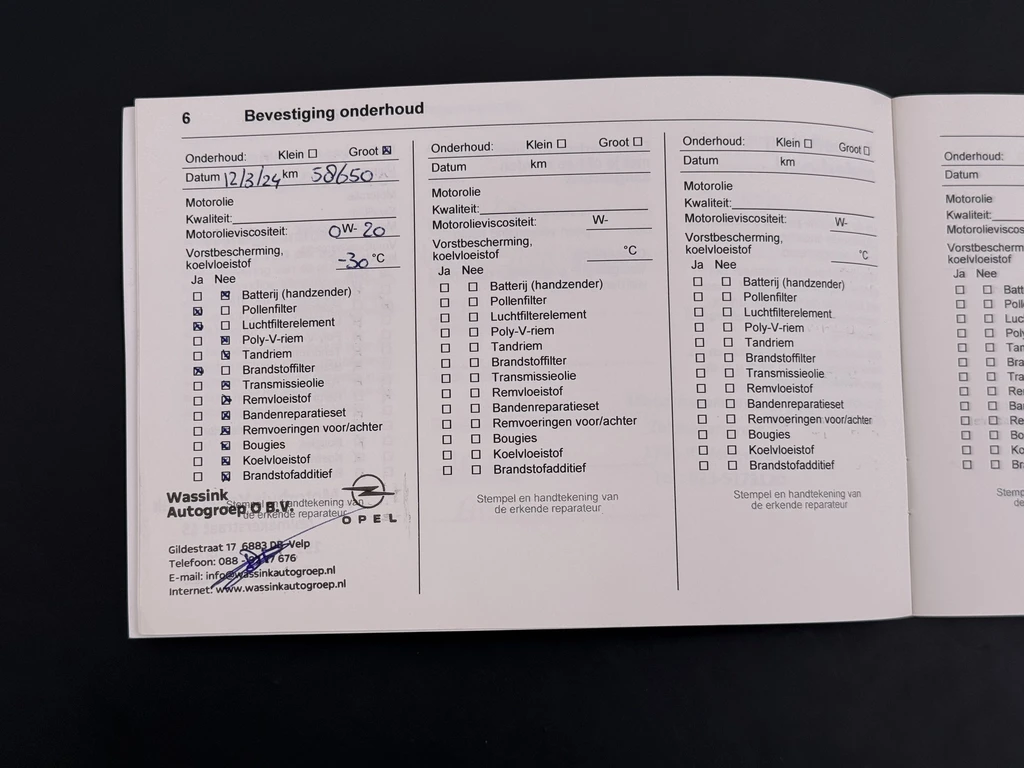 6 Bevestiging onderhoud
Onderhoud: Klein ☐ Groot ☒
Datum 12/3/24 km 58650
Motorolie
Kwaliteit:
Motorolieviscositeit: 0W-20
Vorstbescherming,
koelvloeistof -30 °C
Ja Nee
☐ ☒ Batterij (handzender)
☒ ☐ Pollenfilter
☒ ☐ Luchtfilterelement
☐ ☒ Poly-V-riem
☐ ☒ Tandriem
☒ ☐ Brandstoffilter
☐ ☒ Transmissieolie
☐ ☒ Remvloeistof
☐ ☒ Bandenreparatieset
☐ ☒ Remvoeringen voor/achter
☐ ☒ Bougies
☐ ☒ Koelvloeistof
☐ ☒ Brandstofadditief
Stempel en handtekening van
de erkende reparateur
Wassink
Autogroep O B.V.
OPEL
Gildestraat 17 6883 Velp
Telefoon: 088 676
E-mail: info@wassinkautogroep.nl
Internet: www.wassinkautogroep.nl
Onderhoud: Klein ☐ Groot ☐
Datum km
Motorolie
Kwaliteit:
Motorolieviscositeit: W-
Vorstbescherming,
koelvloeistof °C
Ja Nee
☐ ☐ Batterij (handzender)
☐ ☐ Pollenfilter
☐ ☐ Luchtfilterelement
☐ ☐ Poly-V-riem
☐ ☐ Tandriem
☐ ☐ Brandstoffilter
☐ ☐ Transmissieolie
☐ ☐ Remvloeistof
☐ ☐ Bandenreparatieset
☐ ☐ Remvoeringen voor/achter
☐ ☐ Bougies
☐ ☐ Koelvloeistof
☐ ☐ Brandstofadditief
Stempel en handtekening van
de erkende reparateur
Onderhoud: Klein ☐ Groot ☐
Datum km
Motorolie
Kwaliteit:
Motorolieviscositeit: W-
Vorstbescherming,
koelvloeistof °C
Ja Nee
☐ ☐ Batterij (handzender)
☐ ☐ Pollenfilter
☐ ☐ Luchtfilterelement
☐ ☐ Poly-V-riem
☐ ☐ Tandriem
☐ ☐ Brandstoffilter
☐ ☐ Transmissieolie
☐ ☐ Remvloeistof
☐ ☐ Bandenreparatieset
☐ ☐ Remvoeringen voor/achter
☐ ☐ Bougies
☐ ☐ Koelvloeistof
☐ ☐ Brandstofadditief
Stempel en handtekening van
de erkende reparateur
Onderhoud:
Datum
Motorolie
Kwaliteit:
Motorolieviscos
Vorstbescherm
koelvloeistof
Ja Nee
☐ ☐ Batt
☐ ☐ Poll
☐ ☐ Luc
☐ ☐ Poly
☐ ☐ Tan
☐ ☐ Bra
☐ ☐ Tra
☐ ☐ Re
☐ ☐ Ba
☐ ☐ Re
☐ ☐ Bo
☐ ☐ Ko
☐ ☐ Br
Stemp
de